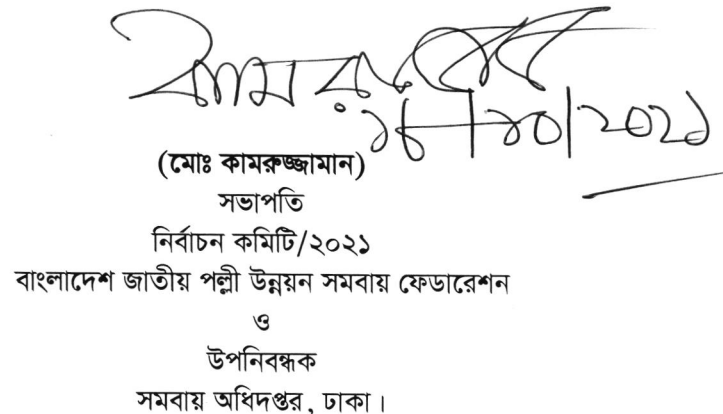 ১৮/১০/২০২১
(মোঃ কামরুজ্জামান)
সভাপতি
নির্বাচন কমিটি/২০২১
বাংলাদেশ জাতীয় পল্লী উন্নয়ন সমবায় ফেডারেশন
ও
উপনিবন্ধক
সমবায় অধিদপ্তর, ঢাকা।